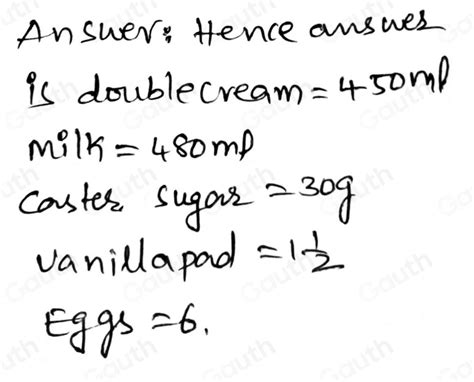 Answer: Hence answer
is doublecream = 450ml
milk = 480ml
Caster sugar = 30g
vanillapad = 1 1/2
Eggs = 6.